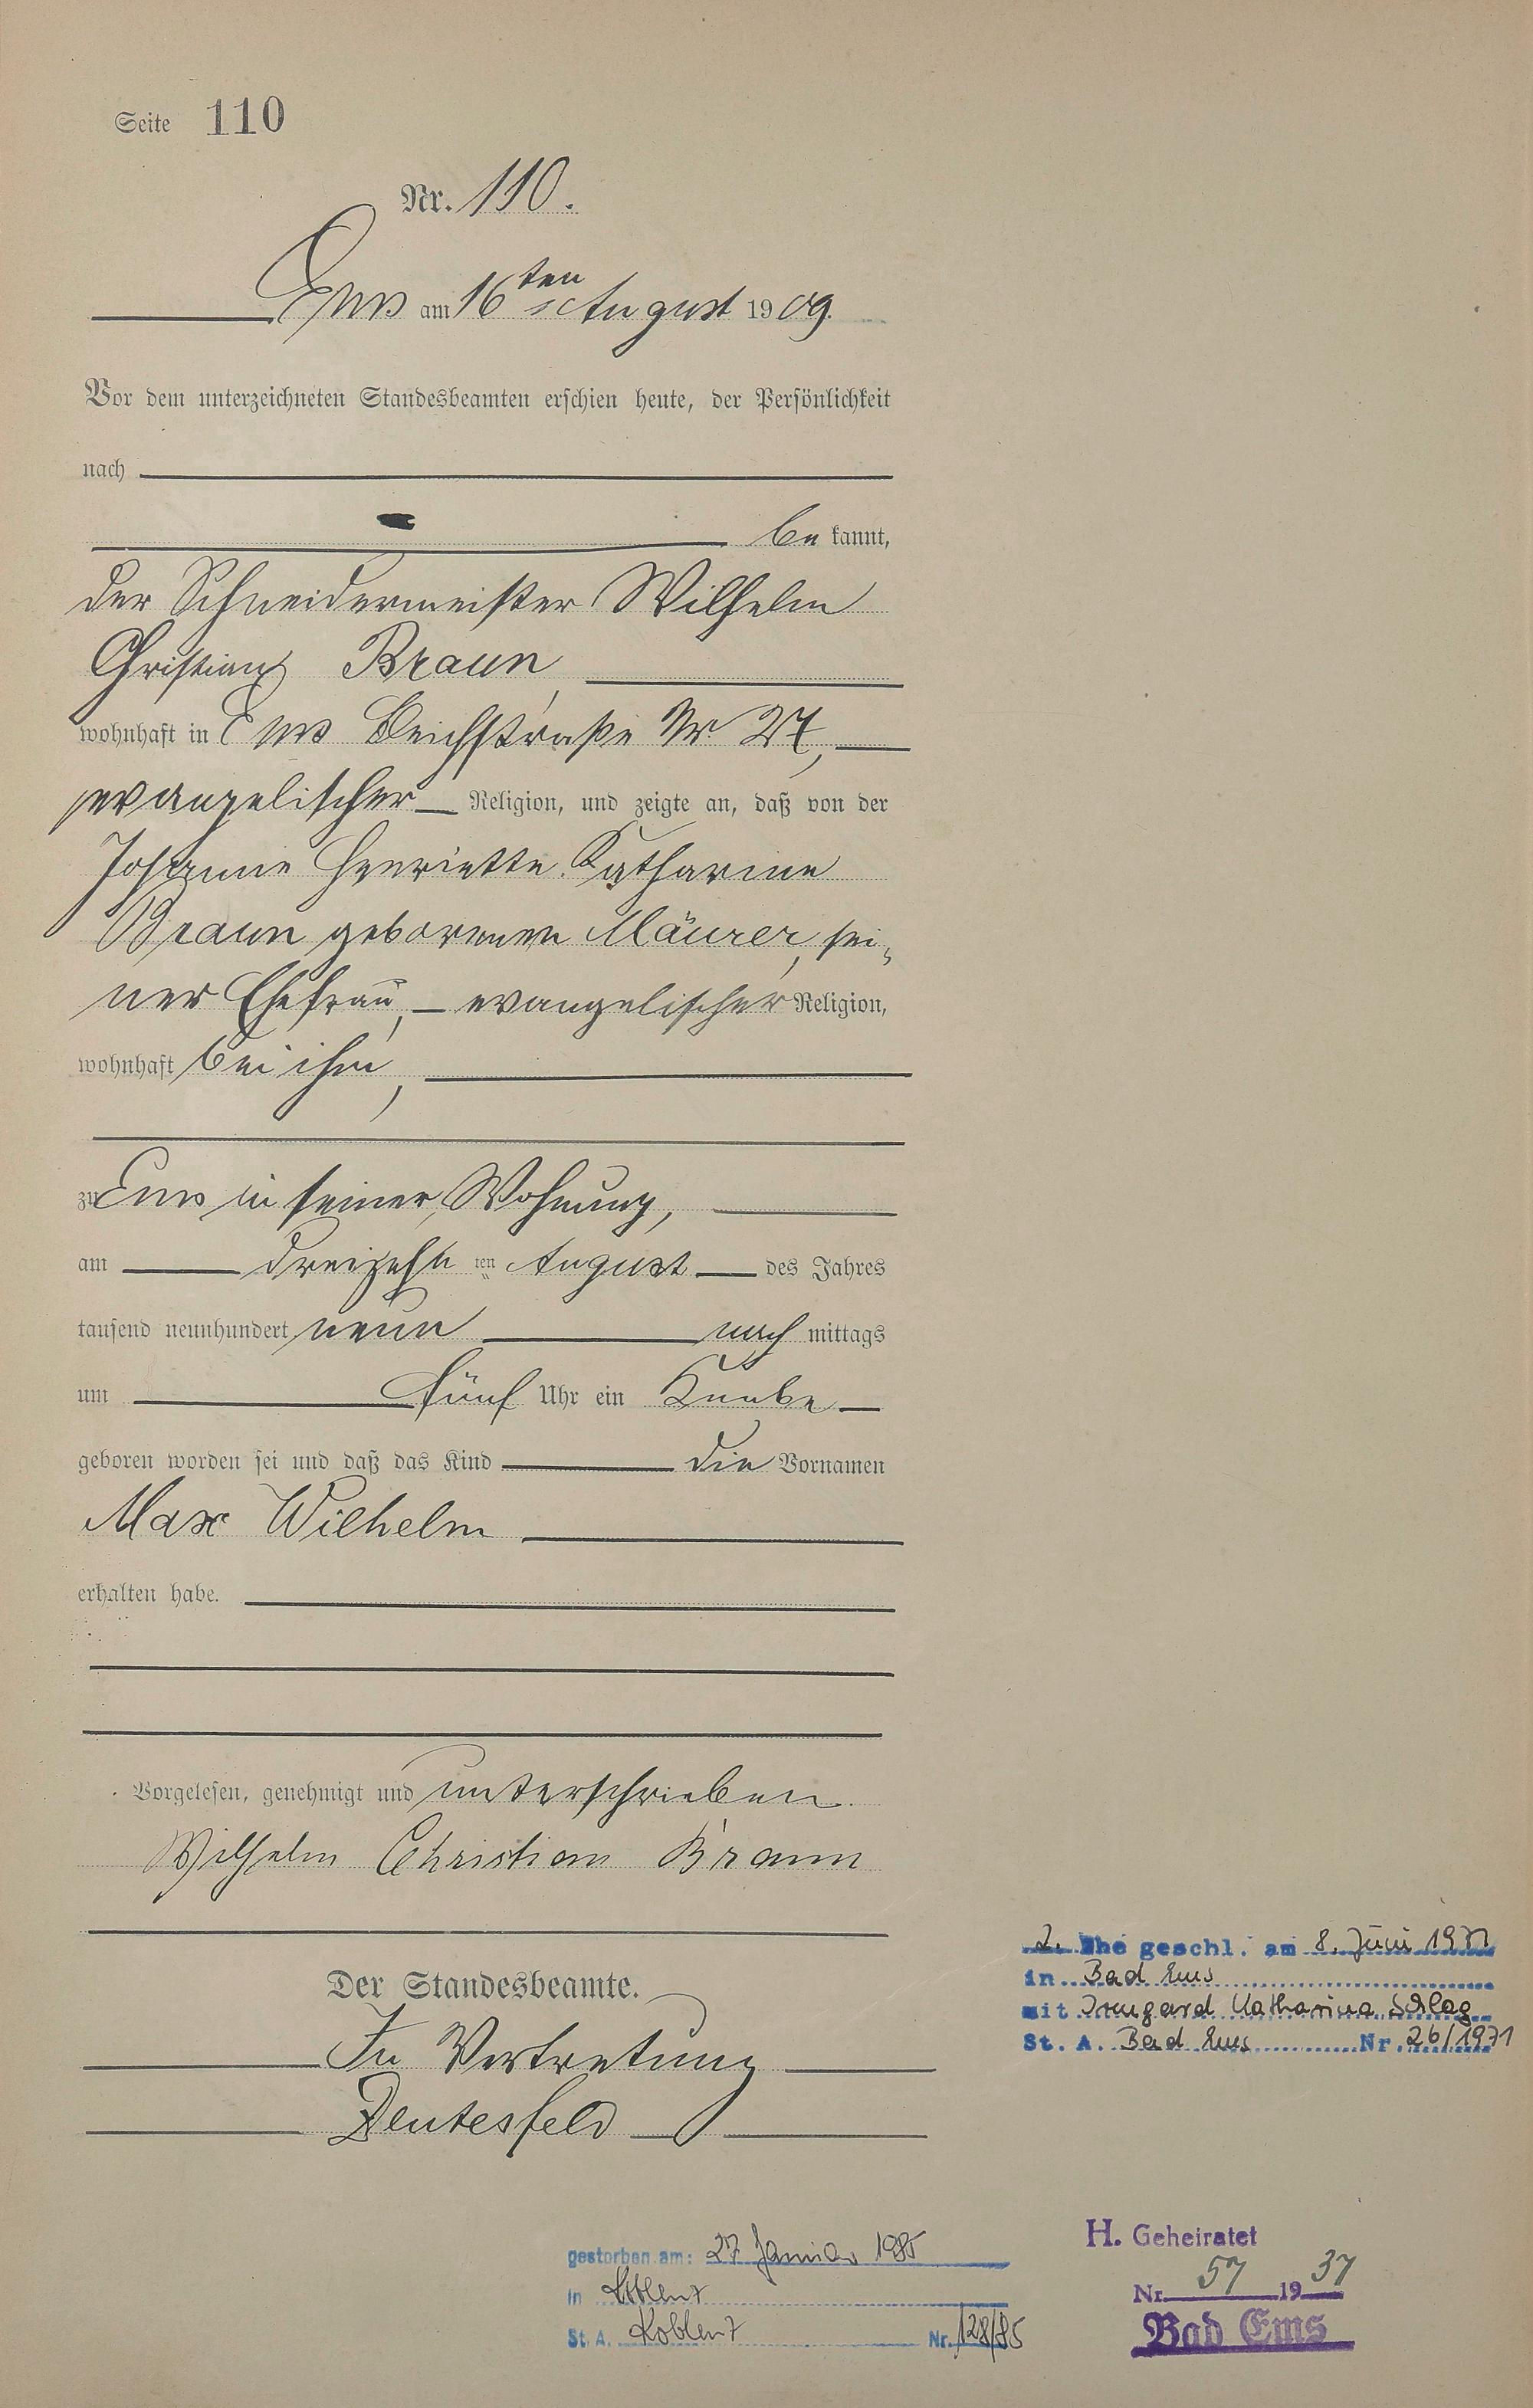 Seite 110
Nr. 110.
Ems am 16ten August 1909.
Vor dem unterzeichneten Standesbeamten erschien heute, der Persönlichkeit
nach
be kannt,
der Schneidermeister Wilhelm
Christian Braun,
wohnhaft in Ems Bleichstraße Nr 27,
evangelischer Religion, und zeigte an, daß von der
Johanne Henriette Katharine
Braun geborenen Mäurer, sei-
ner Ehefrau, evangelischer Religion,
wohnhaft bei ihm,
zu Ems in seiner Wohnung,
am dreizehnten August des Jahres
tausend neunhundert neun nach mittags
um fünf Uhr ein Knabe
geboren worden sei und daß das Kind die Vornamen
Max Wilhelm
erhalten habe.
Vorgelesen, genehmigt und unterschrieben.
Wilhelm Christian Braun
Der Standesbeamte.
In Vertretung
Deutesfeld
2. Ehe geschl. am 8. Juni 1971
in Bad Ems
mit Irmgard Katharina Schlag
St. A. Bad Ems Nr. 26/1971
gestorben am: 27 Januar 1985
in Koblenz
St. A. Koblenz Nr. 128/85
H. Geheiratet
Nr. 57 1937
Bad Ems